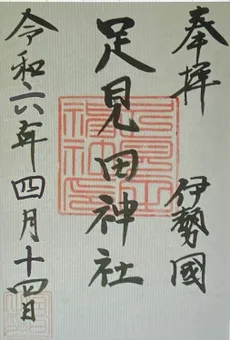 奉拝
伊勢國
足見田神社
令和六年四月十四日